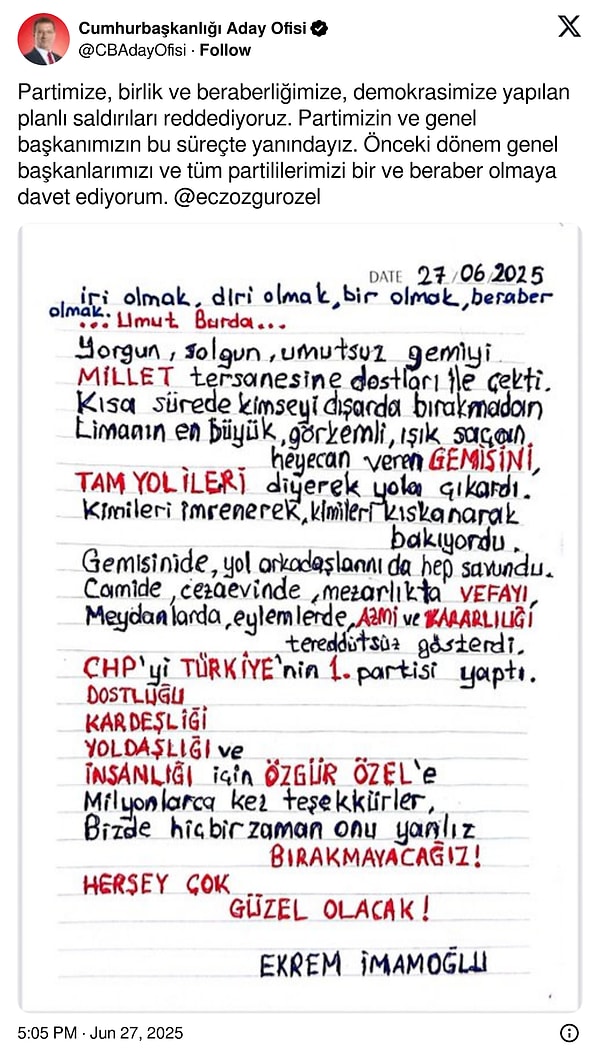 Cumhurbaşkanlığı Aday Ofisi
@CBAdayOfisi · Follow
X
Partimize, birlik ve beraberliğimize, demokrasimize yapılan
planlı saldırıları reddediyoruz. Partimizin ve genel
başkanımızın bu süreçte yanındayız. Önceki dönem genel
başkanlarımızı ve tüm partililerimizi bir ve beraber olmaya
davet ediyorum. @eczozgurozel
DATE 27/06/2025
iri olmak, diri olmak, bir olmak, beraber
olmak.
...Umut Burda...
Yorgun, solgun, umutsuz gemiyi
MİLLET tersanesine dostları ile çekti.
Kısa sürede kimseyi dışarda bırakmadan
Limanın en büyük, görkemli, ışık saçan,
heyecan veren GEMİSİNİ,
TAM YOL İLERİ diyerek yola çıkardı.
Kimileri imrenerek, kimileri kıskanarak
bakıyordu.
Gemisinide, yol arkadaşlarını da hep savundu.
Camide, cezaevinde, mezarlıkta VEFAYI,
Meydanlarda, eylemlerde, AZMİ ve KARARLILIĞI
tereddütsüz gösterdi.
CHP'yi TÜRKİYE'nin 1. partisi yaptı.
DOSTLUĞU
KARDEŞLİĞİ
YOLDAŞLIĞI ve
İNSANLIĞI için ÖZGÜR ÖZEL'e
Milyonlarca kez teşekkürler,
Bizde hiçbir zaman onu yanlız
BIRAKMAYACAĞIZ!
HERŞEY ÇOK
GÜZEL OLACAK!
EKREM İMAMOĞLU
5:05 PM · Jun 27, 2025